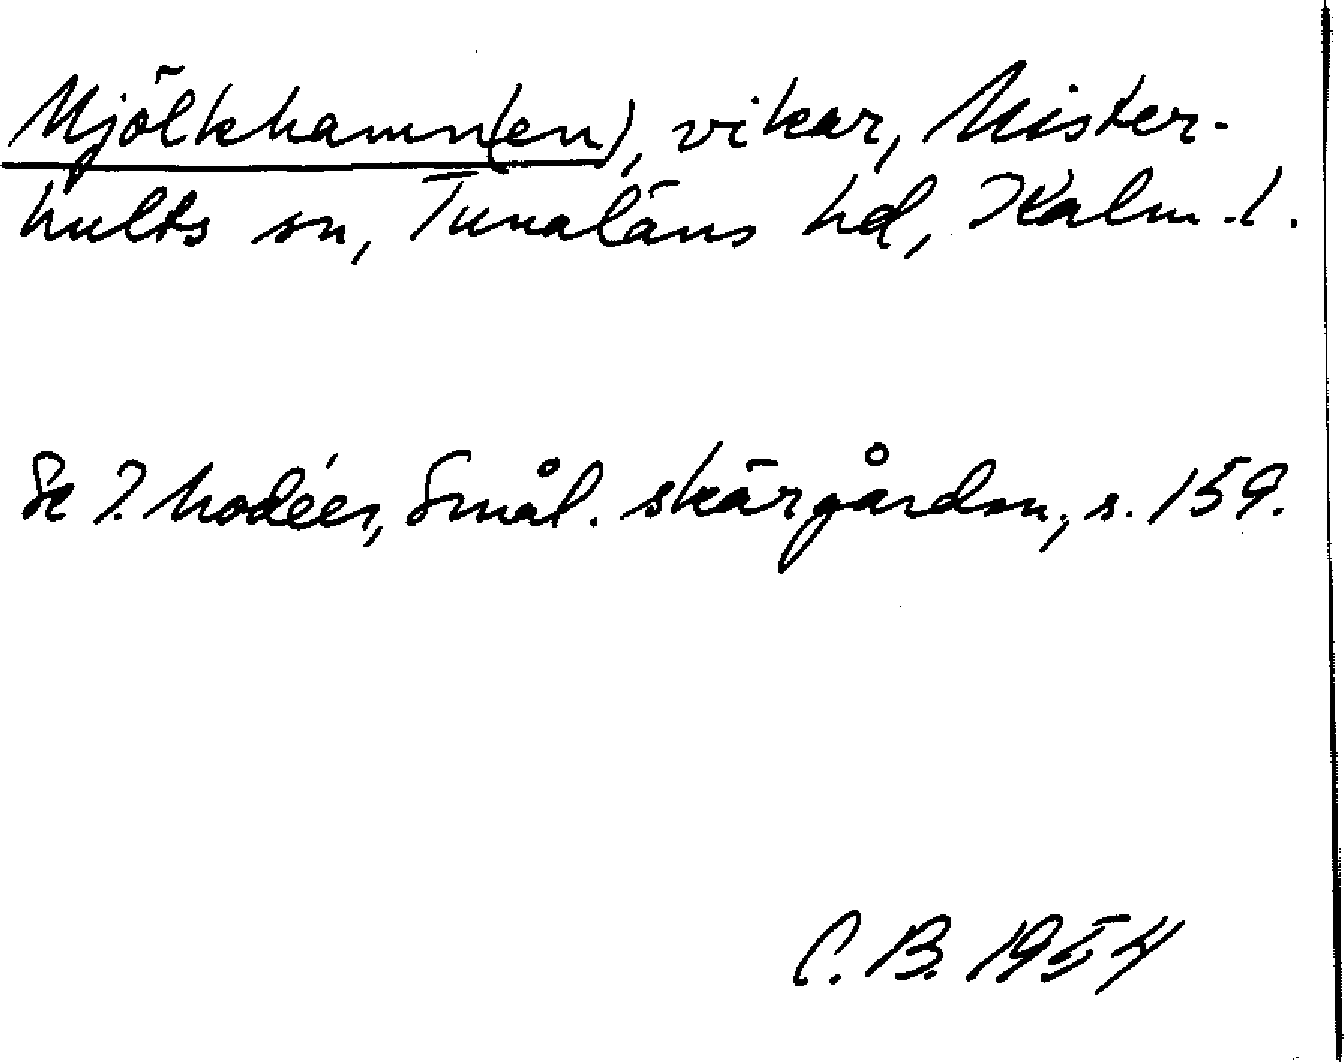 Mjölkhamn(en), vikar, Mister-
hults sn, Tunaläns hd, Kalm. l.
Se I. Modéer, Smål. skärgården, s. 159.
C. B. 1954